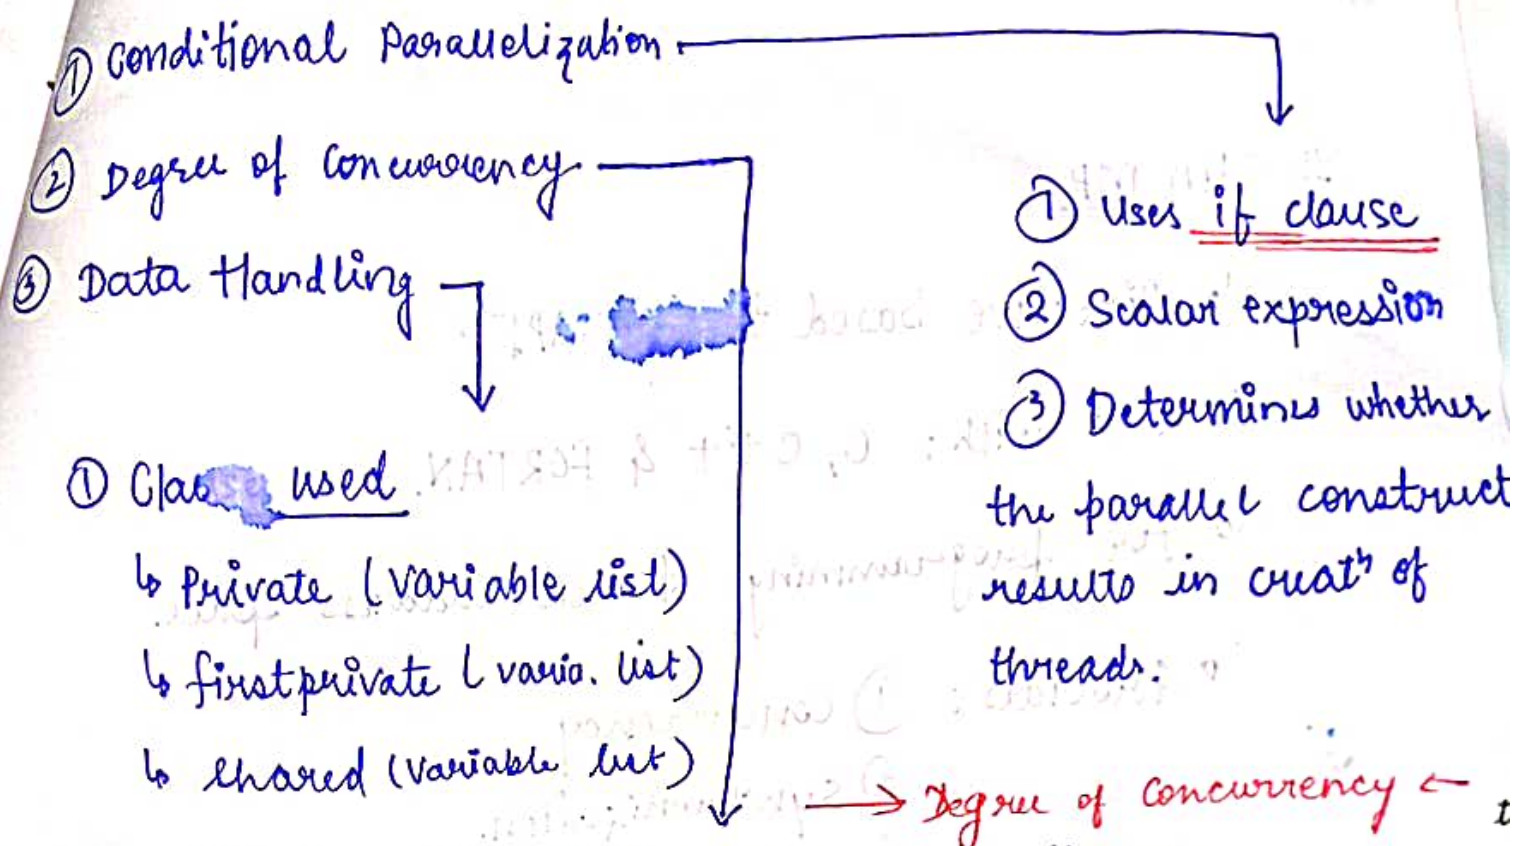 ① Conditional Parallelization
② Degree of Concurrency
③ Data Handling
① used
↳ Private (variable list)
↳ firstprivate (varia. list)
↳ shared (variable list)
① Uses if clause
② Scalar expression
③ Determines whether
the parallel construct
results in creatⁿ of
threads.
→ Degree of Concurrency ←